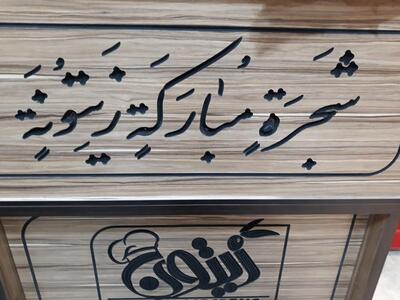 شَجَرَةٍ مُبَارَكَةٍ زَيْتُونَةٍ
زيتون